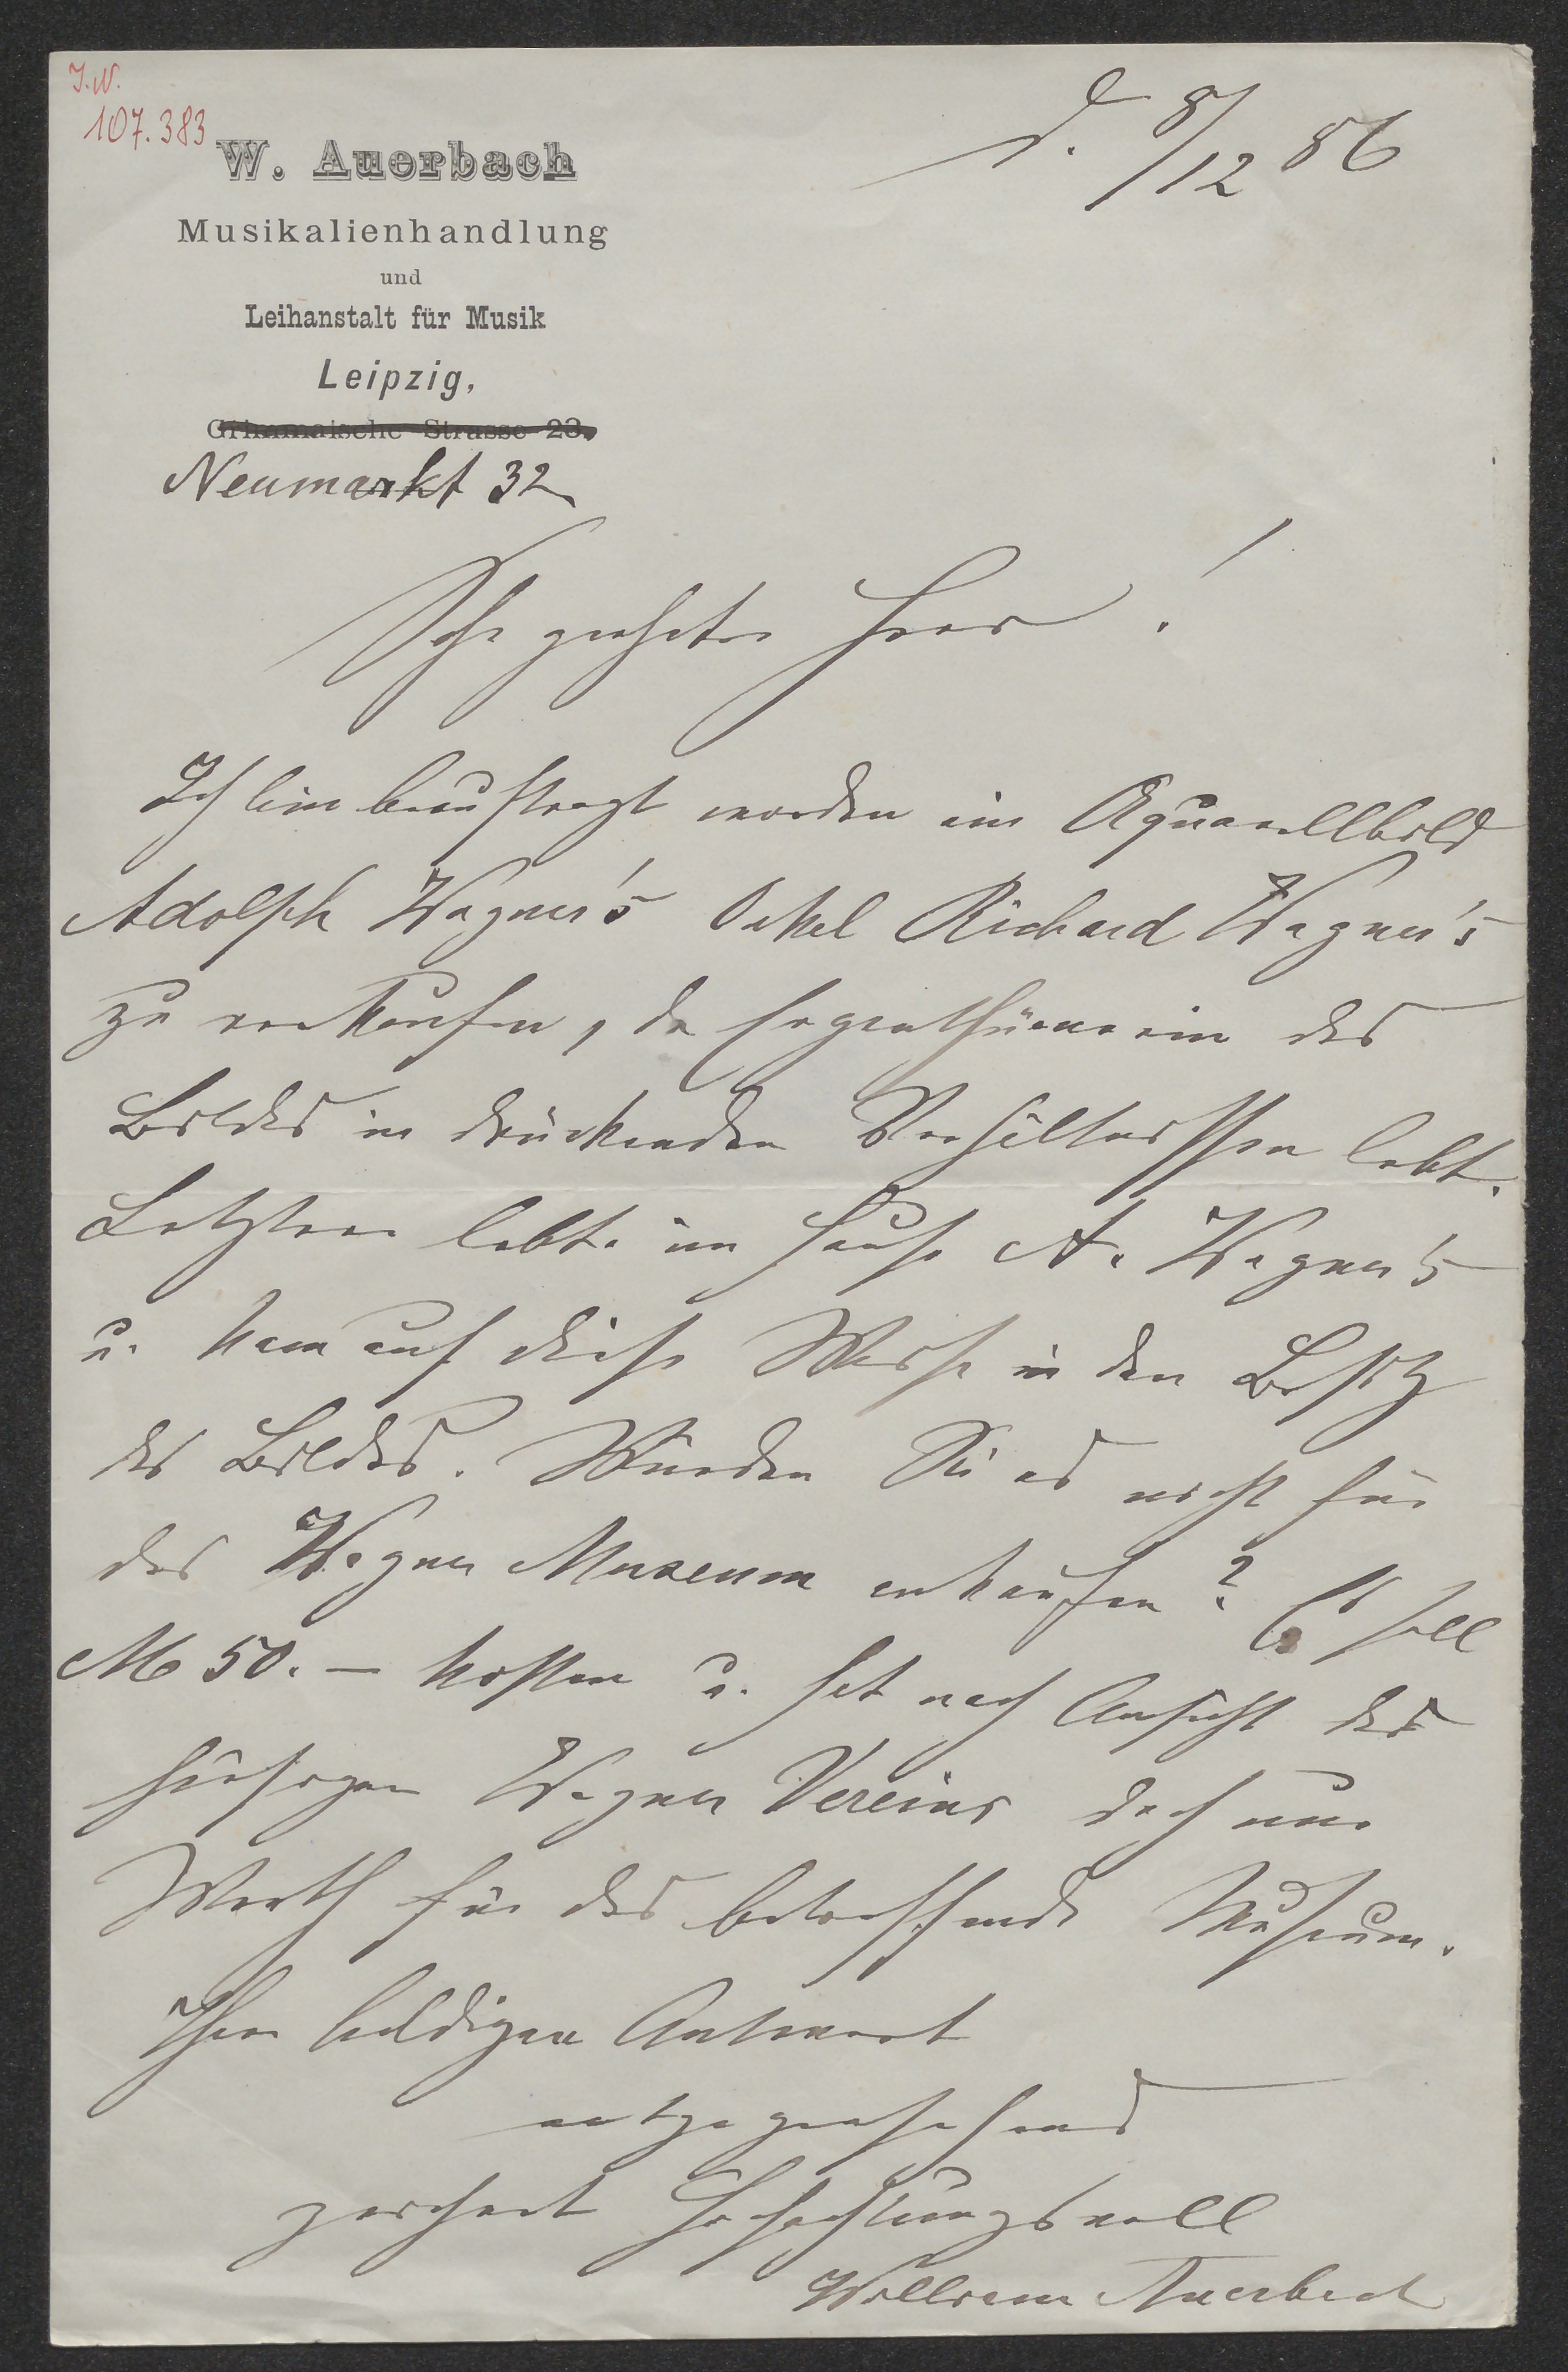 J.N.
107.383
W. Auerbach
Musikalienhandlung
und
Leihanstalt für Musik
Leipzig,
Grimmaische Strasse 23.
Neumarkt 32
d. 8/12 86
Sehr geehrter Herr!
Ich bin beauftragt worden ein Aquarellbild
Adolph Wagner's Onkel Richard Wagner's
zu verkaufen, da Eigenthümerin des
Bildes in drückenden Verhältnissen lebt.
Letztere lebte im Hause A. Wagner's
u. kam auf diese Weise in den Besitz
des Bildes. Würden Sie es nicht für
das Wagner Museum ankaufen? Es soll
M 50.- kosten u. hat nach Ansicht des
hiesigen Wagner Vereins doch nur
Werth für das betreffende Museum.
Ihrer baldigen Antwort
entgegensehend
zeichnet Hochachtungsvoll
William Auerbach